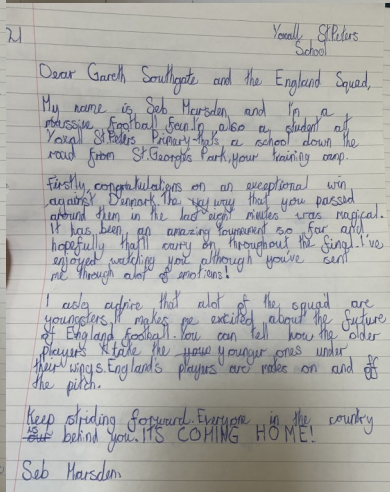 21
Yoxall St.Peters
School
Dear Gareth Southgate and the England Squad,
My name is Seb Marsden and I'm a
massive football fan. I'm also a student at
Yoxall St.Peters Primary-that's a school down the
road from St.George's Park, your training camp.
Firstly, congratulations on an exceptional win
against Denmark. The way that you passed
around them in the last eight minutes was magical.
It has been an amazing tournament so far and
hopefully that'll carry on throughout the final. I've
enjoyed watching you although you've sent
me through alot of emotions!
I also admire that alot of the squad are
youngsters, it makes me excited about the future
of England football. You can tell how the older
players take the younger ones under
their wings. England's players are on and off
the pitch.
Keep striding forward. Everyone in the country
is behind you. ITS COMING HOME!
Seb Marsden